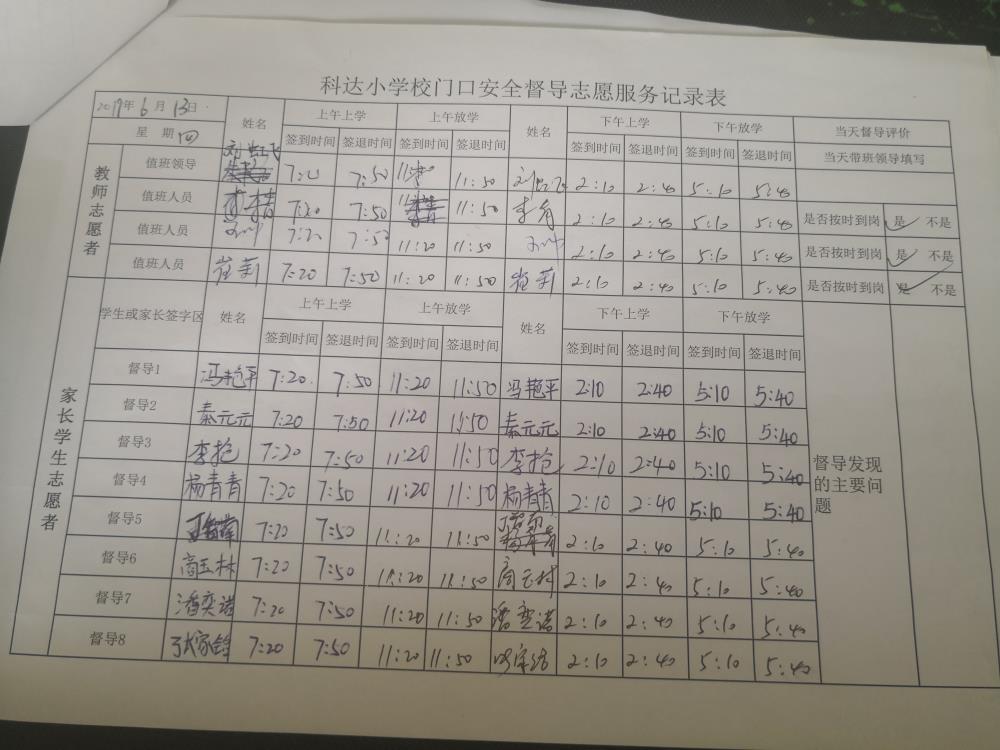 科达小学校门口安全督导志愿服务记录表
2019年6月13日 姓名 上午上学 上午放学 姓名 下午上学 下午放学 当天督导评价
星期四 签到时间 签退时间 签到时间 签退时间 签到时间 签退时间 签到时间 签退时间 当天带班领导填写
教师志愿者
值班领导 7:20 7:50 11:50 2:10 2:40 5:10 5:40
值班人员 7:20 7:50 11:50 2:10 2:40 5:10 5:40 是否按时到岗 是 不是
值班人员 7:20 7:50 11:20 11:50 2:10 2:40 5:10 5:40 是否按时到岗 是 不是
值班人员 崔莉 7:20 7:50 11:20 11:50 崔莉 2:10 2:40 5:10 5:40 是否按时到岗 是 不是
学生或家长签字区 姓名 上午上学 上午放学 姓名 下午上学 下午放学
签到时间 签退时间 签到时间 签退时间 签到时间 签退时间 签到时间 签退时间
家长学生志愿者
督导1 冯艳平 7:20 7:50 11:20 11:50 冯艳平 2:10 2:40 5:10 5:40
督导2 秦元元 7:20 7:50 11:20 11:50 秦元元 2:10 2:40 5:10 5:40
督导3 李抢 7:20 7:50 11:20 11:50 李抢 2:10 2:40 5:10 5:40
督导4 杨青青 7:20 7:50 11:20 11:50 杨青青 2:10 2:40 5:10 5:40
督导5 7:20 7:50 11:20 11:50 2:10 2:40 5:10 5:40
督导6 商玉林 7:20 7:50 11:20 11:50 2:10 2:40 5:10 5:40
督导7 潘奕诺 7:20 7:50 11:20 11:50 潘奕诺 2:10 2:40 5:10 5:40
督导8 7:20 7:50 11:20 11:50 2:10 2:40 5:10 5:40
督导发现
的主要问
题